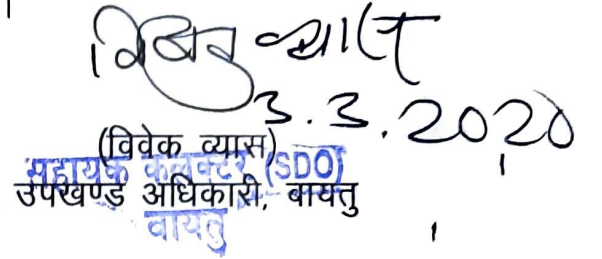 विवेक व्यास
3.3.2020
(विवेक व्यास)
सहायक कलक्टर (SDO)
उपखण्ड अधिकारी, बायतु
बायतु